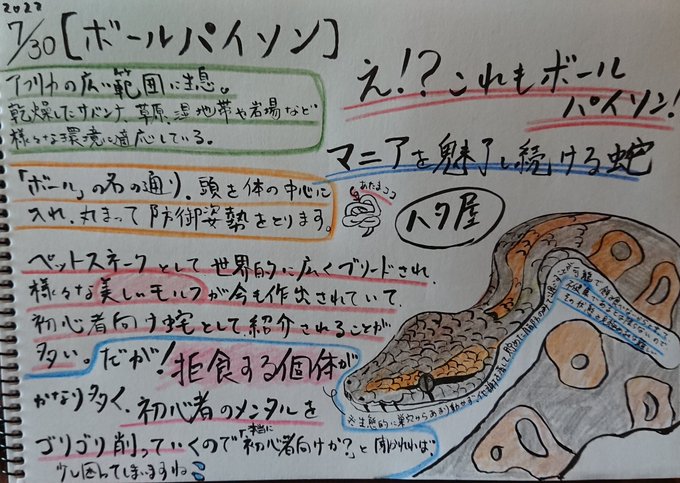 2022
7/30 [ボールパイソン]
アフリカの広い範囲に生息。
乾燥したサバンナ、草原、湿地帯や岩場など
様々な環境に適応している。
え!? これもボール
パイソン!
マニアを魅了し続ける蛇
「ボール」の名の通り、頭を体の中心に
入れ、丸まって防御姿勢をとります。
あたまココ
ハタ屋
ペットスネークとして、世界的に広くブリードされ、
様々な美しいモルフが今も作出されていて、
初心者向け蛇として紹介されることが
多い。だが!拒食する個体が
かなり多く、初心者のメンタルを
ゴリゴリ削っていくので「本当に初心者向けか?」と聞かれれば
少し困ってしまいますね